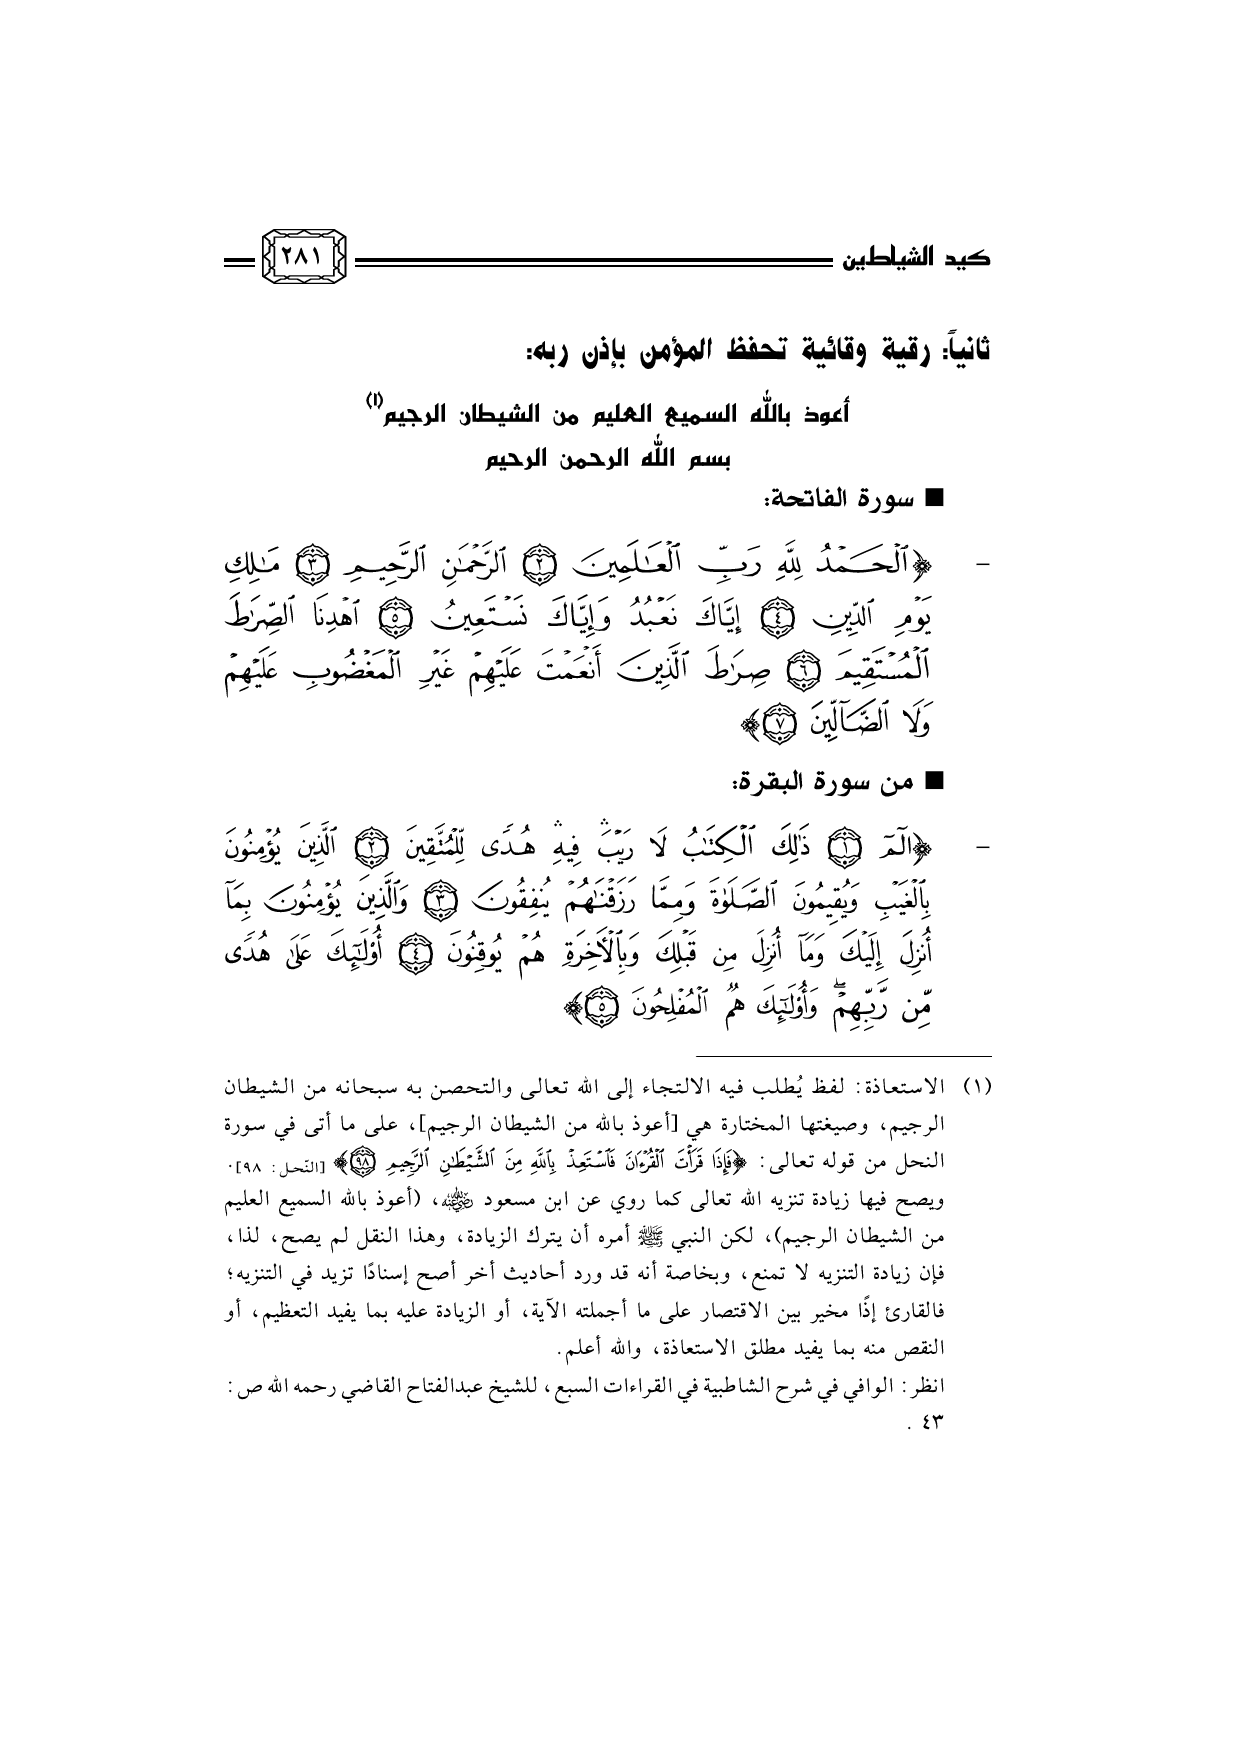 كيد الشياطين ٢٨١
ثانياً: رقية وقائية تحفظ المؤمن بإذن ربه:
أعوذ بالله السميع العليم من الشيطان الرجيم(١)
بسم الله الرحمن الرحيم
■ سورة الفاتحة:
– ﴿ٱلْحَمْدُ لِلَّهِ رَبِّ ٱلْعَٰلَمِينَ ٢ ٱلرَّحْمَٰنِ ٱلرَّحِيمِ ٣ مَٰلِكِ
يَوْمِ ٱلدِّينِ ٤ إِيَّاكَ نَعْبُدُ وَإِيَّاكَ نَسْتَعِينُ ٥ ٱهْدِنَا ٱلصِّرَٰطَ
ٱلْمُسْتَقِيمَ ٦ صِرَٰطَ ٱلَّذِينَ أَنْعَمْتَ عَلَيْهِمْ غَيْرِ ٱلْمَغْضُوبِ عَلَيْهِمْ
وَلَا ٱلضَّآلِّينَ ٧﴾
■ من سورة البقرة:
– ﴿الٓمٓ ١ ذَٰلِكَ ٱلْكِتَٰبُ لَا رَيْبَ ۛ فِيهِ ۛ هُدًى لِّلْمُتَّقِينَ ٢ ٱلَّذِينَ يُؤْمِنُونَ
بِٱلْغَيْبِ وَيُقِيمُونَ ٱلصَّلَوٰةَ وَمِمَّا رَزَقْنَٰهُمْ يُنفِقُونَ ٣ وَٱلَّذِينَ يُؤْمِنُونَ بِمَآ
أُنزِلَ إِلَيْكَ وَمَآ أُنزِلَ مِن قَبْلِكَ وَبِٱلْأَخِرَةِ هُمْ يُوقِنُونَ ٤ أُو۟لَٰٓئِكَ عَلَىٰ هُدًى
مِّن رَّبِّهِمْ ۖ وَأُو۟لَٰٓئِكَ هُمُ ٱلْمُفْلِحُونَ ٥﴾
(١) الاستعاذة: لفظ يُطلب فيه الالتجاء إلى الله تعالى والتحصن به سبحانه من الشيطان
الرجيم، وصيغتها المختارة هي [أعوذ بالله من الشيطان الرجيم]، على ما أتى في سورة
النحل من قوله تعالى: ﴿فَإِذَا قَرَأْتَ ٱلْقُرْءَانَ فَٱسْتَعِذْ بِٱللَّهِ مِنَ ٱلشَّيْطَٰنِ ٱلرَّجِيمِ ٩٨﴾ [النّحل: ٩٨].
ويصح فيها زيادة تنزيه الله تعالى كما روي عن ابن مسعود رضي الله عنه، (أعوذ بالله السميع العليم
من الشيطان الرجيم)، لكن النبي ﷺ أمره أن يترك الزيادة، وهذا النقل لم يصح، لذا،
فإن زيادة التنزيه لا تمنع، وبخاصة أنه قد ورد أحاديث أخر أصح إسنادًا تزيد في التنزيه؛
فالقارئ إذًا مخير بين الاقتصار على ما أجملته الآية، أو الزيادة عليه بما يفيد التعظيم، أو
النقص منه بما يفيد مطلق الاستعاذة، والله أعلم.
انظر: الوافي في شرح الشاطبية في القراءات السبع، للشيخ عبدالفتاح القاضي رحمه الله ص:
٤٣ .